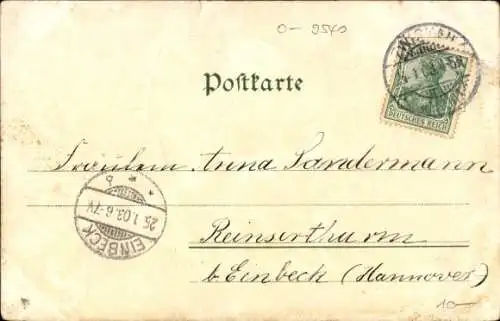 0-9540
Postkarte
DEUTSCHES REICH
Fräulein Anna Sandermann
EINBECK
25.1.03.6-7V.
Reinserthurm
b. Einbeck (Hannover)
10-